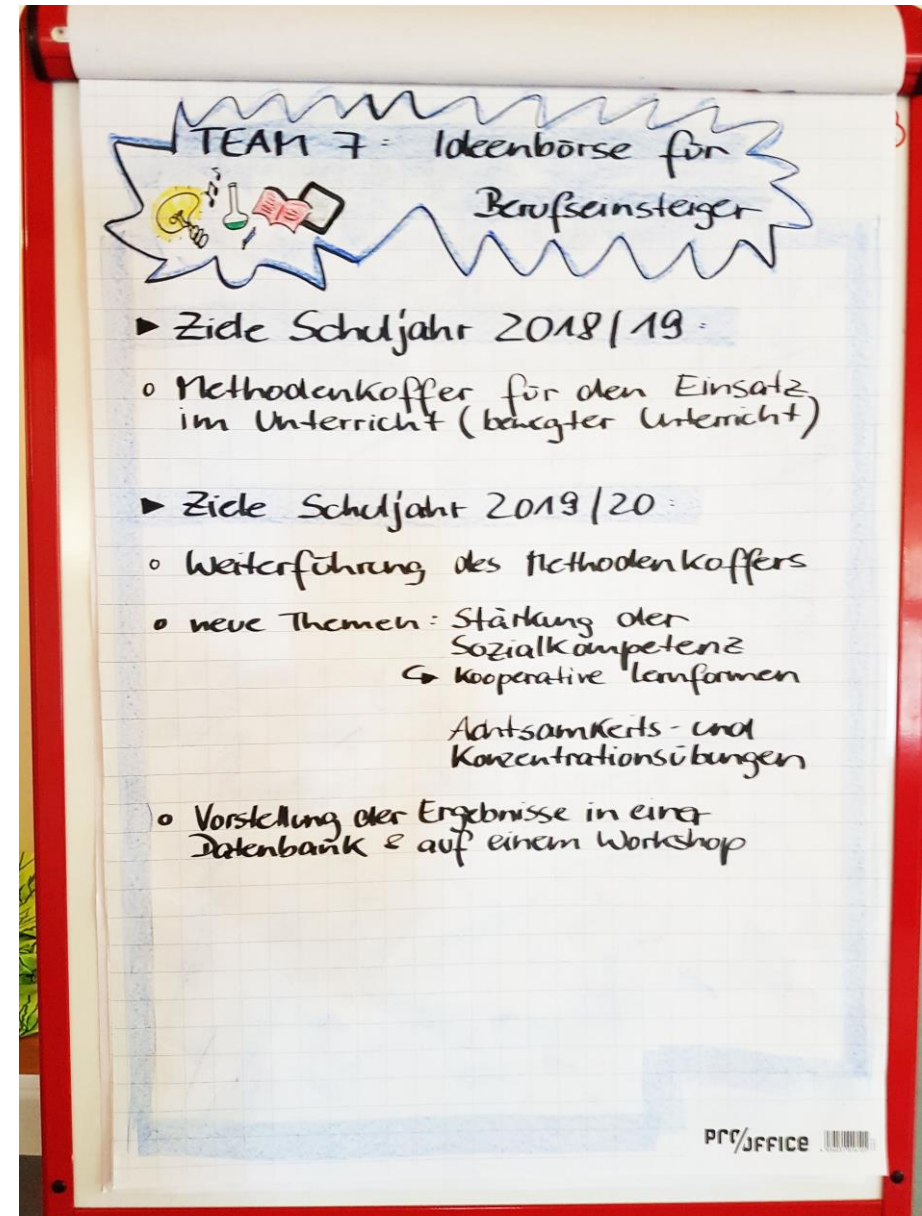 TEAM 7: Ideenbörse für
Berufseinsteiger
► Ziele Schuljahr 2018/19:
o Methodenkoffer für den Einsatz
im Unterricht (bewegter Unterricht)
► Ziele Schuljahr 2019/20:
o Weiterführung des Methodenkoffers
o neue Themen: Stärkung der
Sozialkompetenz
↪ Kooperative Lernformen
Achtsamkeits- und
Konzentrationsübungen
o Vorstellung der Ergebnisse in einer
Datenbank & auf einem Workshop
pro/office